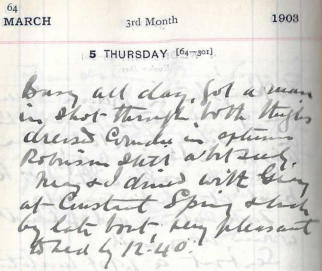 64
MARCH 3rd Month 1903
5 THURSDAY [64—301]
Busy all day. Got a man
in shot through both thighs
dressed in
Robinson still a bit
& I dined with
at Constant Spring & back
by late boat, very pleasant
to bed by 12.40.